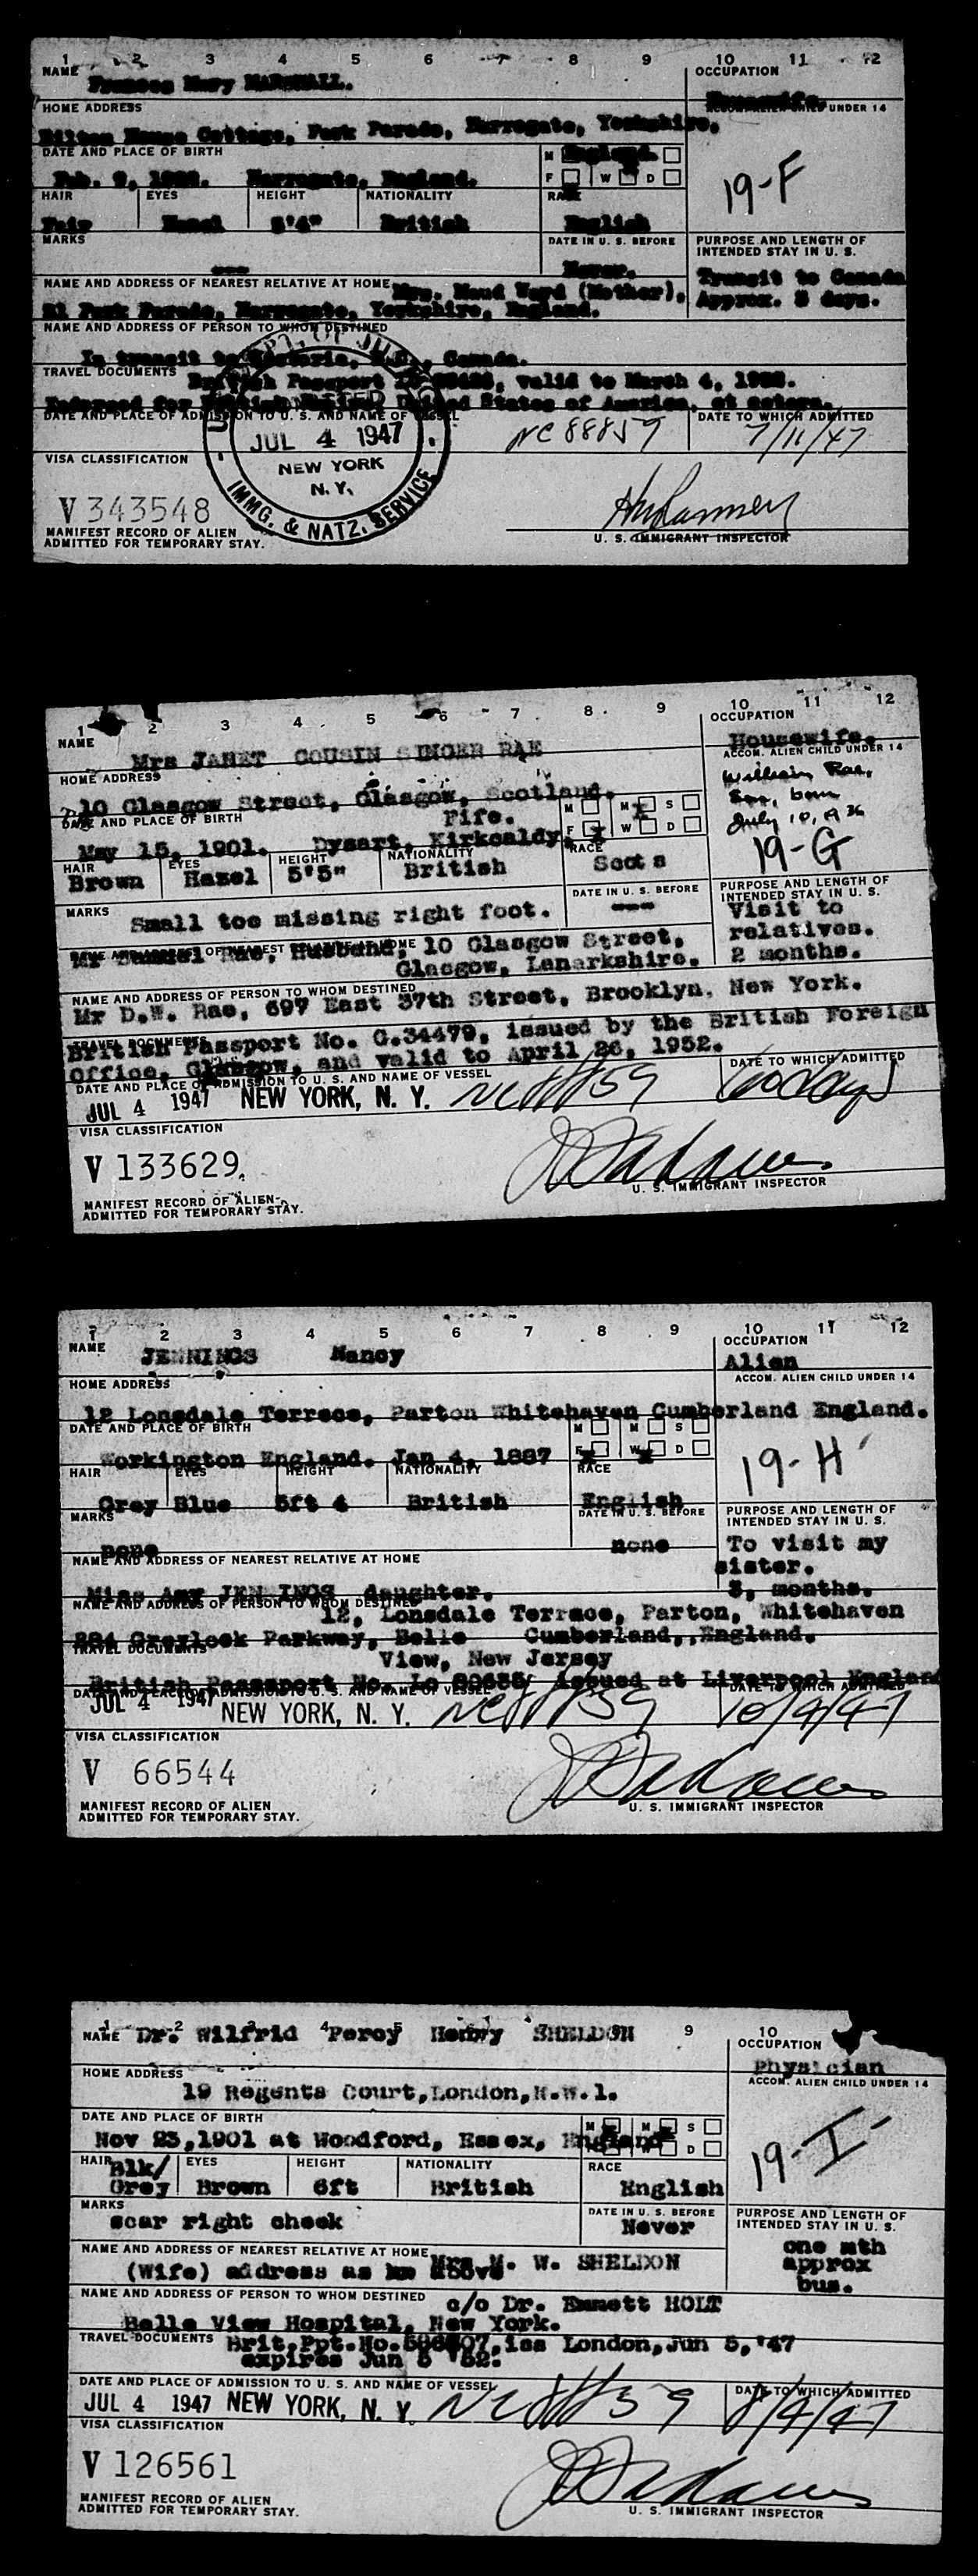 1 2 3 4 5 6 7 8 9 10 11 12
NAME Frances Mary MARSHALL.
OCCUPATION Housewife.
HOME ADDRESS
ACCOM. ALIEN CHILD UNDER 14
Bilton House Cottage, Park Parade, Harrogate, Yorkshire,
DATE AND PLACE OF BIRTH
M England.
Feb. 9, Harrogate, England.
F W D
19-F
HAIR EYES HEIGHT NATIONALITY RACE
Fair Hazel 5'4" British English
MARKS DATE IN U. S. BEFORE PURPOSE AND LENGTH OF
INTENDED STAY IN U. S.
--- Never. Transit to Canada
NAME AND ADDRESS OF NEAREST RELATIVE AT HOME Mrs. Maud Ward (Mother), Approx. 8 days.
21 Park Parade, Harrogate, Yorkshire, England.
NAME AND ADDRESS OF PERSON TO WHOM DESTINED
In transit to Victoria, B.C., Canada.
TRAVEL DOCUMENTS British Passport valid to March 4,
Endorsed for United States of America,
DATE AND PLACE OF ADMISSION TO U. S. AND NAME OF VESSEL DATE TO WHICH ADMITTED
JUL 4 1947 NC 88859 7/11/47
NEW YORK
N. Y.
IMMG. & NATZ. SERVICE
VISA CLASSIFICATION
V 343548
MANIFEST RECORD OF ALIEN
ADMITTED FOR TEMPORARY STAY.
U. S. IMMIGRANT INSPECTOR
1 2 3 4 5 6 7 8 9 10 11 12
NAME Mrs JANET COUSIN SINGER RAE
OCCUPATION Housewife.
HOME ADDRESS
ACCOM. ALIEN CHILD UNDER 14
10 Glasgow Street, Glasgow, Scotland.
William Rae,
Son, born
July 10,
DATE AND PLACE OF BIRTH Fife.
M M S
May 15, 1901. Dysart, Kirkcaldy,
F X W D
19-G
HAIR EYES HEIGHT NATIONALITY RACE
Brown Hazel 5'5" British Scots
MARKS Small toe missing right foot.
DATE IN U. S. BEFORE ---
PURPOSE AND LENGTH OF
INTENDED STAY IN U. S.
Visit to
relatives.
2 months.
NAME AND ADDRESS OF NEAREST RELATIVE AT HOME
Mr Samuel Rae, Husband, 10 Glasgow Street,
Glasgow, Lanarkshire.
NAME AND ADDRESS OF PERSON TO WHOM DESTINED
Mr D.W. Rae, 697 East 37th Street, Brooklyn, New York.
TRAVEL DOCUMENTS
British Passport No. C.34479, issued by the British Foreign
Office, Glasgow, and valid to April 26, 1952.
DATE AND PLACE OF ADMISSION TO U. S. AND NAME OF VESSEL DATE TO WHICH ADMITTED
JUL 4 1947 NEW YORK, N. Y. NC 88859 60 days
VISA CLASSIFICATION
V 133629
MANIFEST RECORD OF ALIEN
ADMITTED FOR TEMPORARY STAY.
U. S. IMMIGRANT INSPECTOR
1 2 3 4 5 6 7 8 9 10 11 12
NAME JENNINGS Nancy
OCCUPATION Alien
HOME ADDRESS
ACCOM. ALIEN CHILD UNDER 14
12 Lonsdale Terrace, Parton Whitehaven Cumberland England.
DATE AND PLACE OF BIRTH
M M S
Workington England. Jan 4, 1887
F X W X D
19-H
HAIR EYES HEIGHT NATIONALITY RACE
Grey Blue 5ft 4 British English
MARKS DATE IN U. S. BEFORE PURPOSE AND LENGTH OF
INTENDED STAY IN U. S.
none none To visit my
sister.
3, months.
NAME AND ADDRESS OF NEAREST RELATIVE AT HOME
Miss Amy JENNINGS daughter.
NAME AND ADDRESS OF PERSON TO WHOM DESTINED
12, Lonsdale Terrace, Parton, Whitehaven
284 Greylock Parkway, Belle Cumberland, England.
TRAVEL DOCUMENTS
View, New Jersey
British Passport No. Lo issued at Liverpool England
DATE AND PLACE OF ADMISSION TO U. S. AND NAME OF VESSEL DATE TO WHICH ADMITTED
JUL 4 1947 NEW YORK, N. Y. NC 88859 10/4/47
VISA CLASSIFICATION
V 66544
MANIFEST RECORD OF ALIEN
ADMITTED FOR TEMPORARY STAY.
U. S. IMMIGRANT INSPECTOR
1 2 3 4 5 9 10
NAME Dr. Wilfrid Percy Henry SHELDON
OCCUPATION
Physician
HOME ADDRESS
ACCOM. ALIEN CHILD UNDER 14
19 Regents Court, London, N.W.1.
DATE AND PLACE OF BIRTH
M M S
Nov 23, 1901 at Woodford, Essex, England
D
19-I-
HAIR EYES HEIGHT NATIONALITY RACE
Blk/
Grey Brown 6ft British English
MARKS
scar right cheek
DATE IN U. S. BEFORE
Never
PURPOSE AND LENGTH OF
INTENDED STAY IN U. S.
one mth
approx
bus.
NAME AND ADDRESS OF NEAREST RELATIVE AT HOME Mrs M. W. SHELDON
(Wife) address as above
NAME AND ADDRESS OF PERSON TO WHOM DESTINED c/o Dr. Emmett HOLT
Belle View Hospital, New York.
TRAVEL DOCUMENTS Brit.Ppt.No. iss London, Jun 5, '47
expires Jun 5 '52.
DATE AND PLACE OF ADMISSION TO U. S. AND NAME OF VESSEL DATE TO WHICH ADMITTED
JUL 4 1947 NEW YORK, N. Y. NC 88859 8/4/47
VISA CLASSIFICATION
V 126561
MANIFEST RECORD OF ALIEN
ADMITTED FOR TEMPORARY STAY.
U. S. IMMIGRANT INSPECTOR